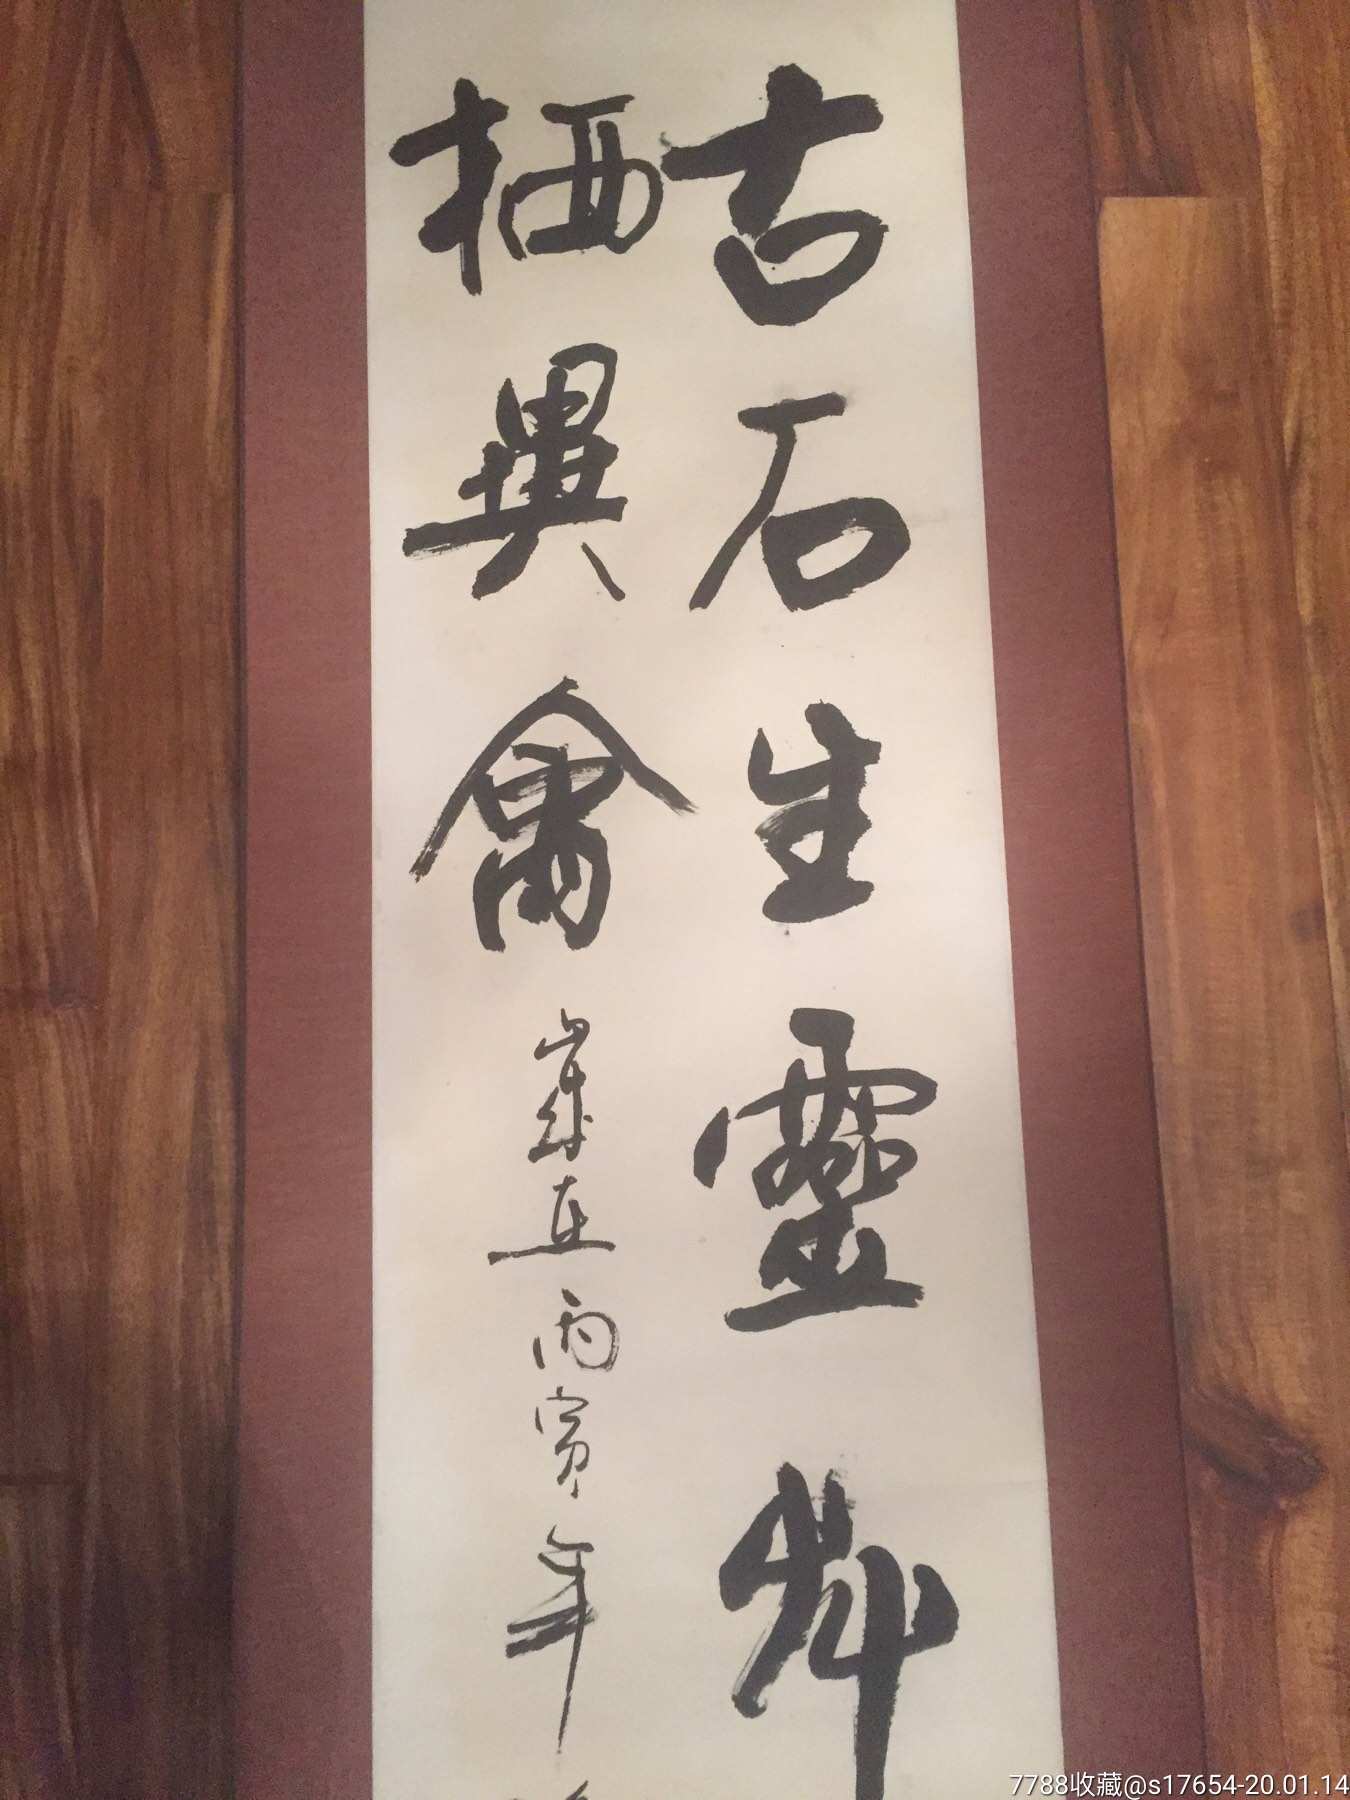 古石生靈艸
栖異禽
歲在丙寅年
7788收藏@s17654-20.01.14